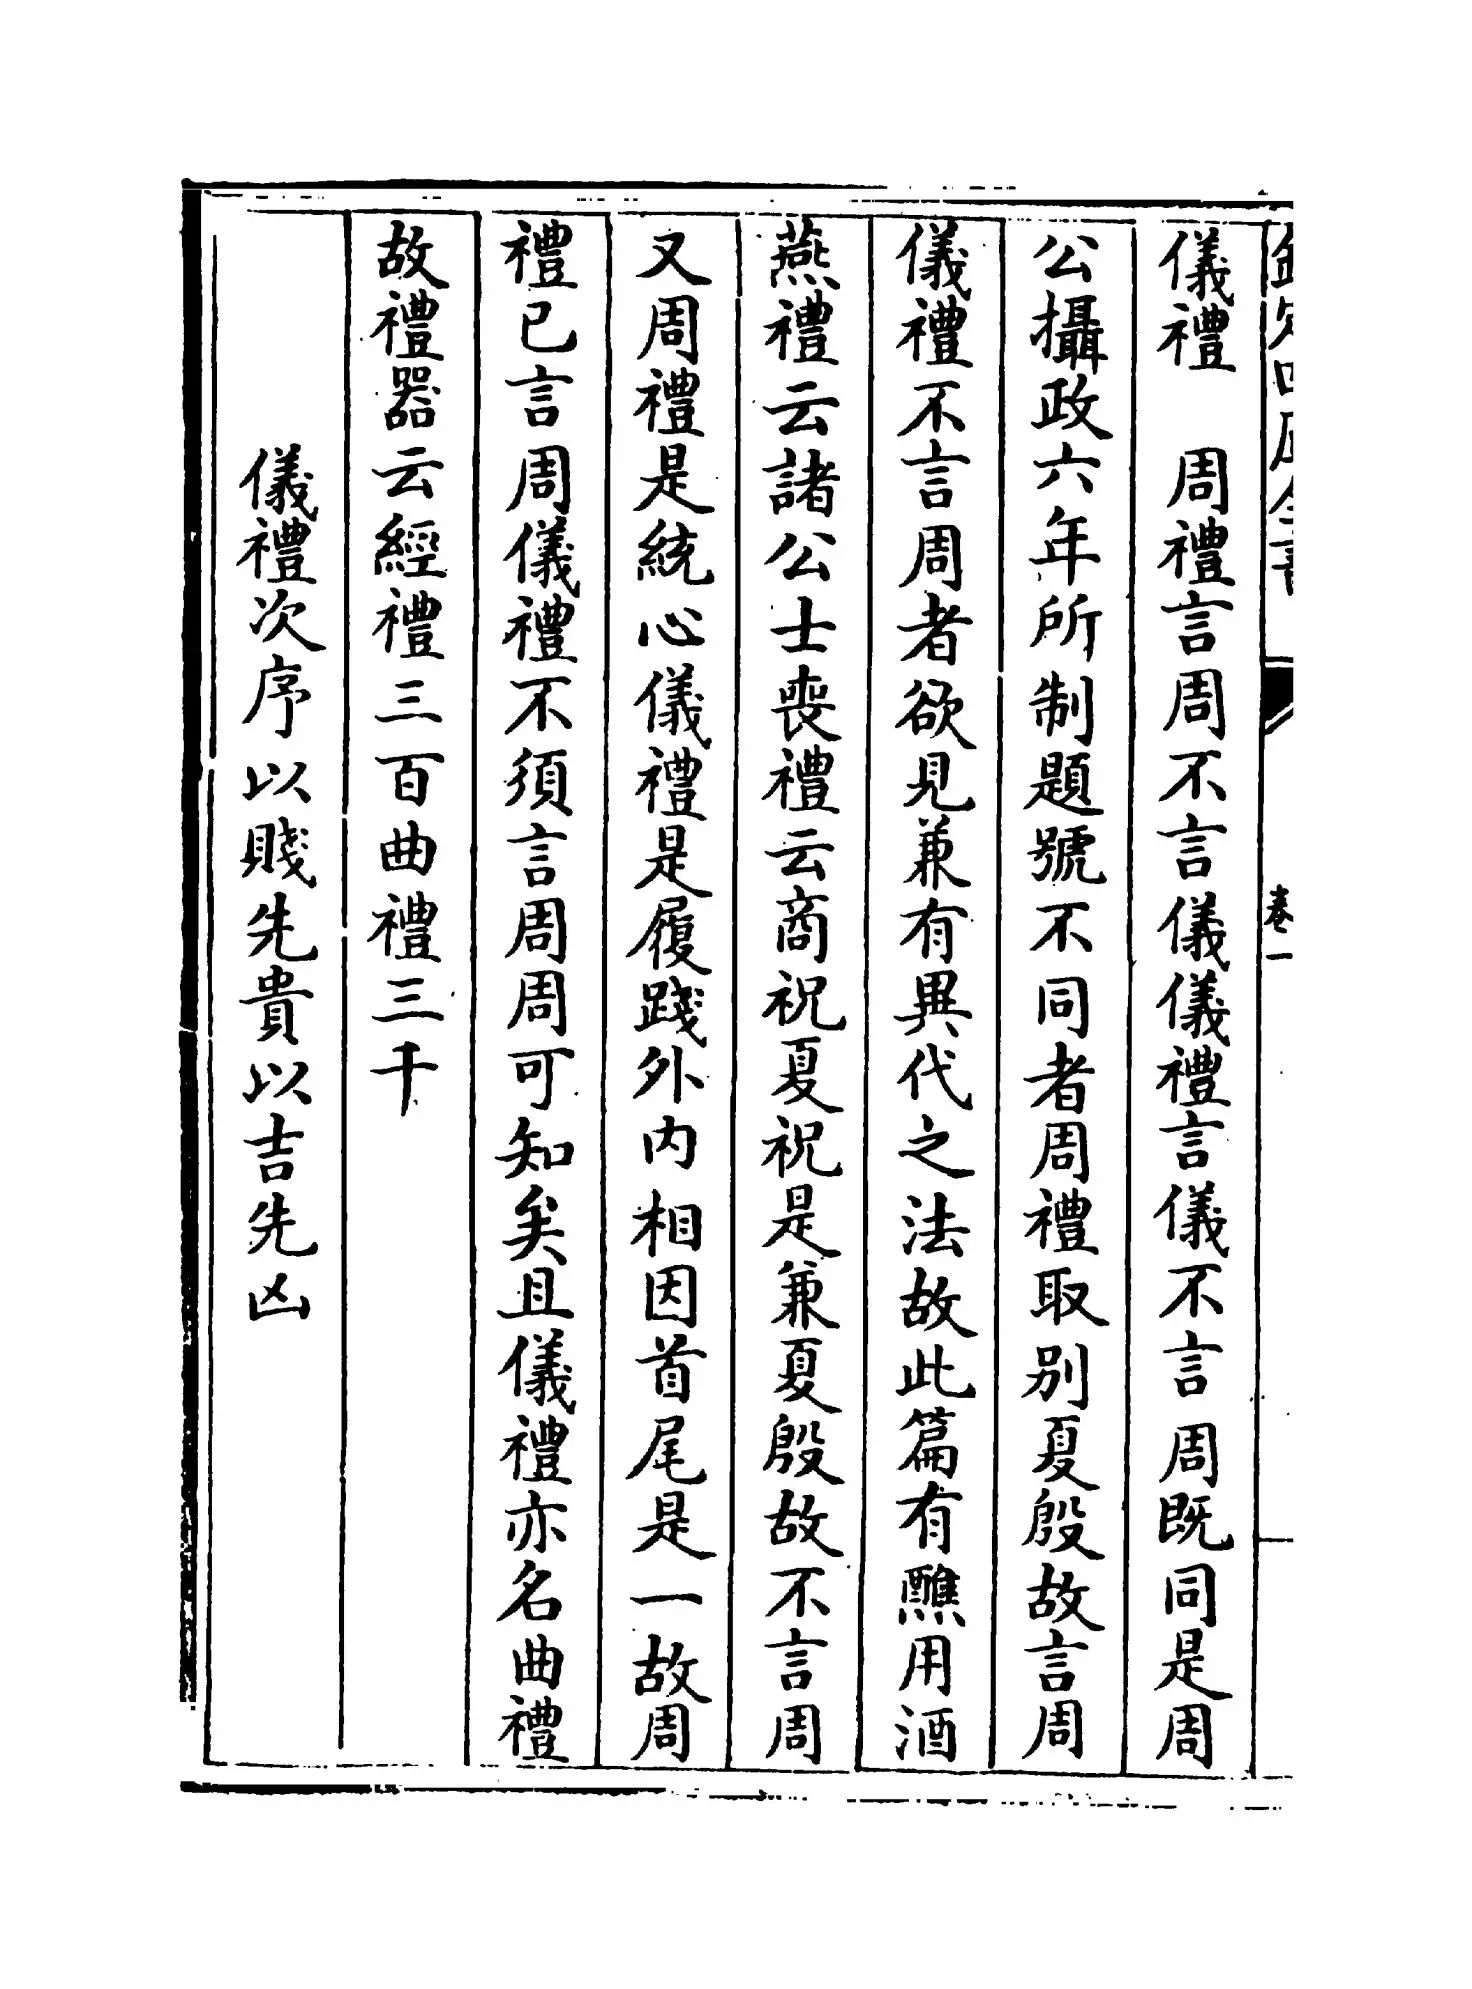 儀禮　周禮言周不言儀儀禮言儀不言周既同是周
公攝政六年所制題號不同者周禮取别夏殷故言周
儀禮不言周者欲見兼有異代之法故此篇有醮用酒
燕禮云諸公士喪禮云商祝夏祝是兼夏殷故不言周
又周禮是統心儀禮是履踐外内相因首尾是一故周
禮已言周儀禮不須言周周可知矣且儀禮亦名曲禮
故禮器云經禮三百曲禮三千
儀禮次序以賤先貴以吉先凶
卷一